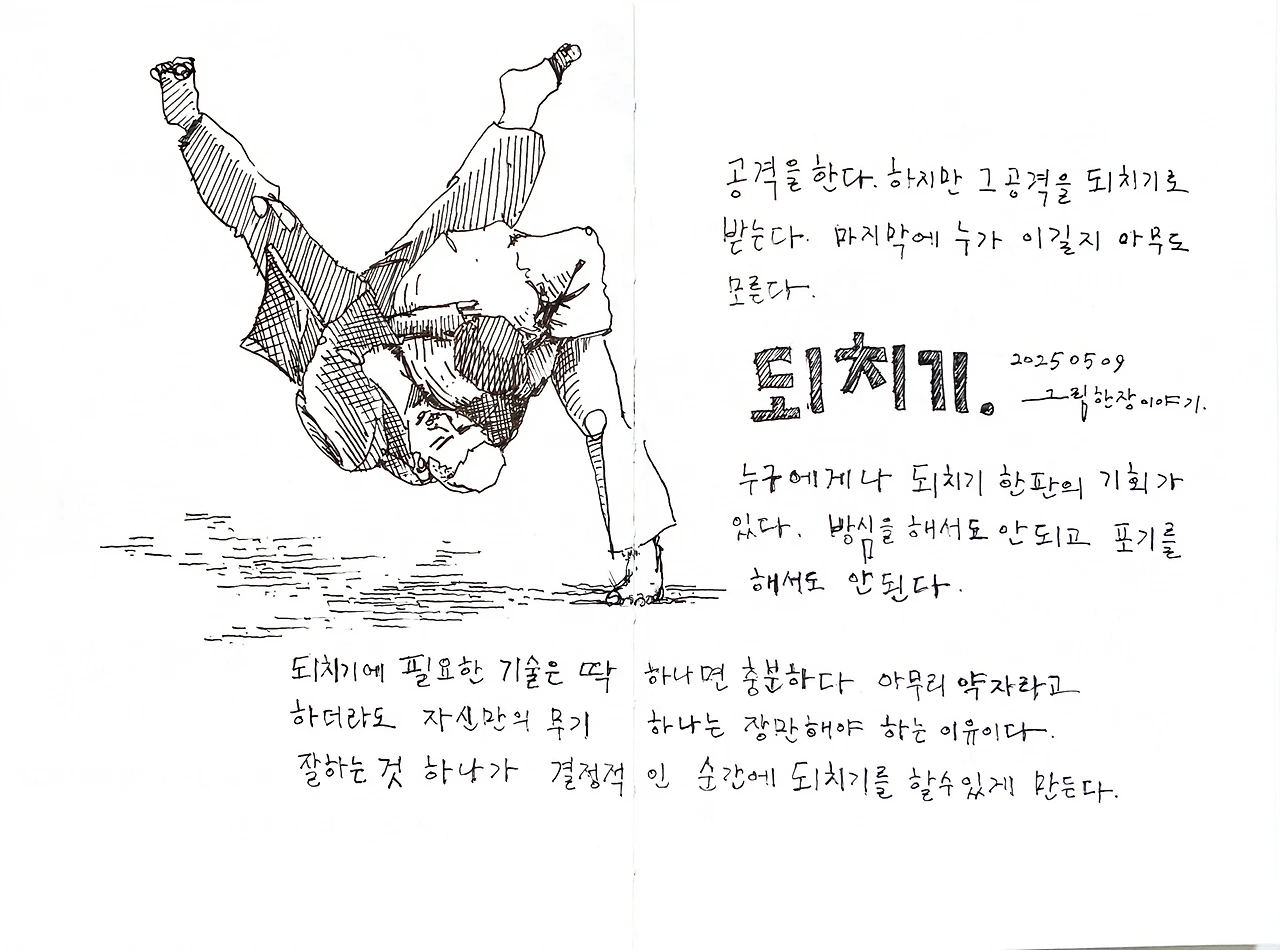 공격을 한다. 하지만 그 공격을 되치기로
받는다. 마지막에 누가 이길지 아무도
모른다.
되치기.
2025 05 09
그림한장이야기.
누구에게나 되치기 한판의 기회가
있다. 방심을 해서도 안되고 포기를
해서도 안된다.
되치기에 필요한 기술은 딱 하나면 충분하다 아무리 약자라고
하더라도 자신만의 무기 하나는 장만해야 하는 이유이다.
잘하는 것 하나가 결정적인 순간에 되치기를 할수있게 만든다.